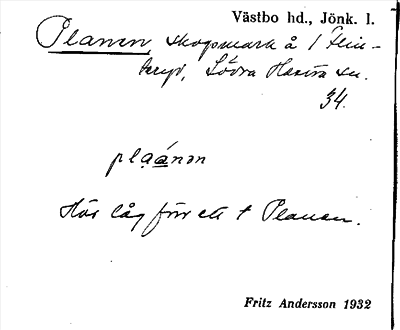 Västbo hd., Jönk. l.
Planen, skogsmark å 1 Flin-
beryd, Södra Hestra sn.
34.
plạánən
Här låg förr ett t Planen.
Fritz Andersson 1932